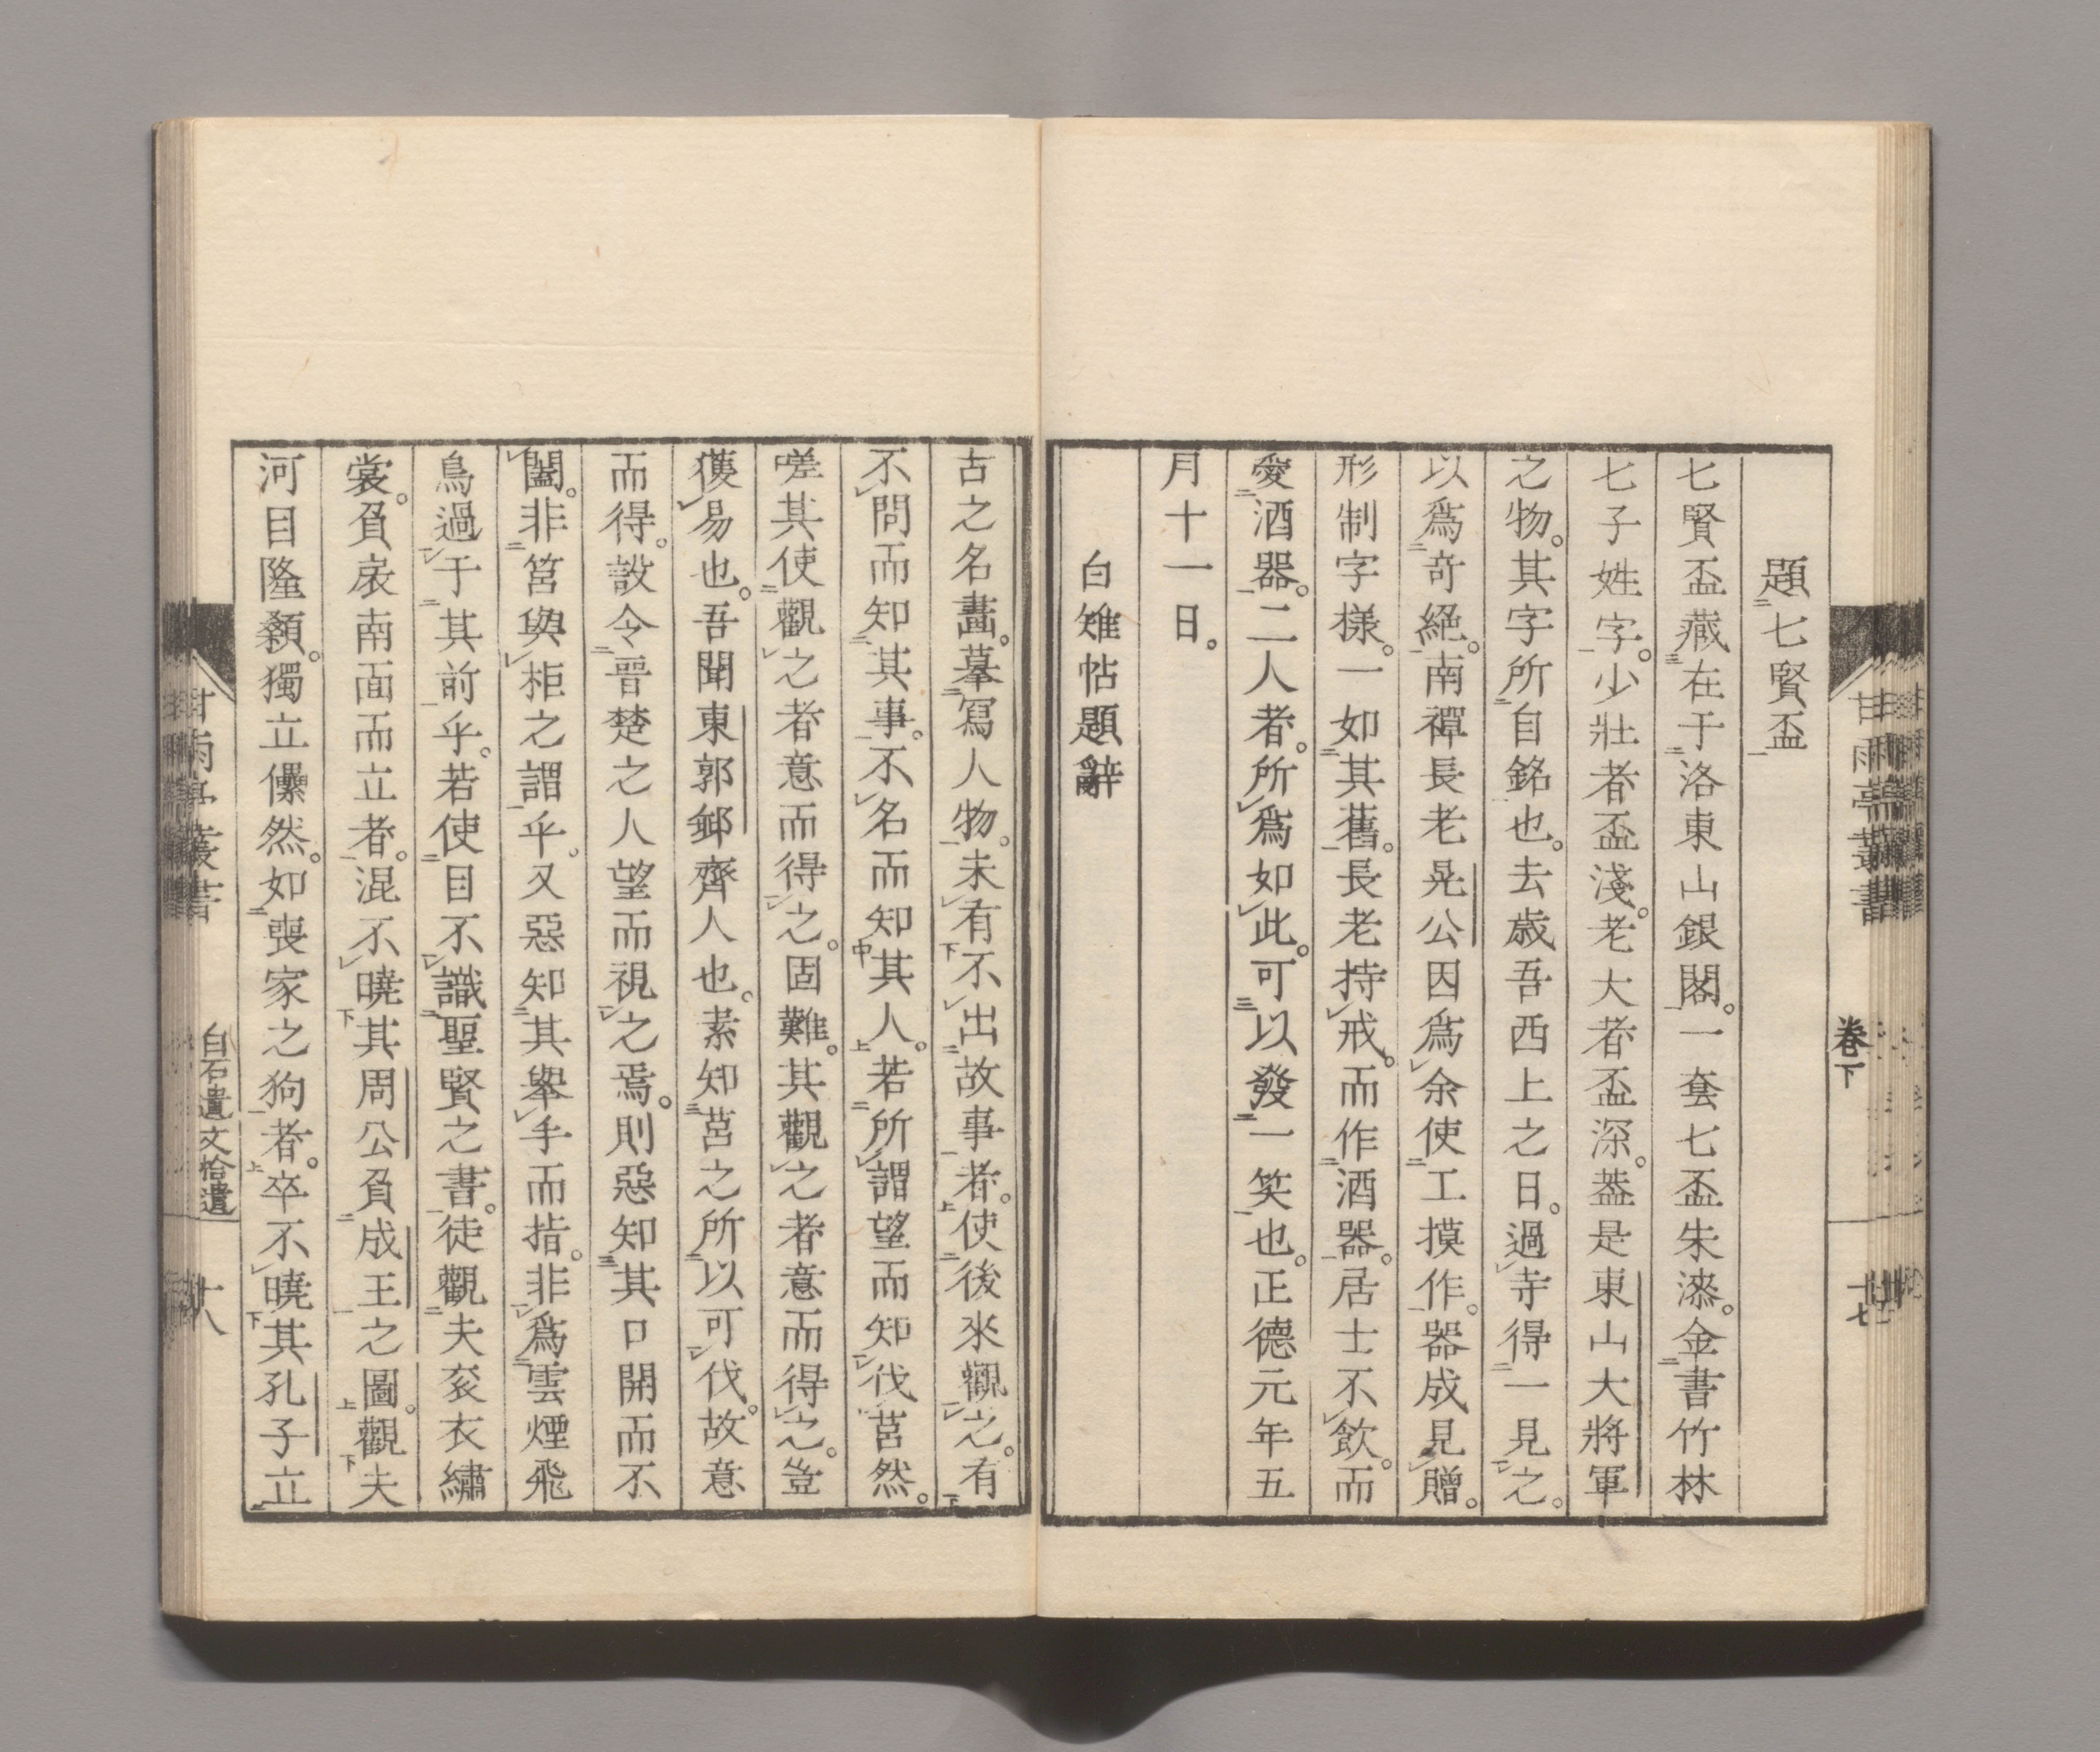 題七賢盃
七賢盃藏在于洛東山銀閣。一套七盃朱漆。金書竹林
七子姓字。少壯者盃淺。老大者盃深。蓋是東山大將軍
之物。其字所自銘也。去歳吾西上之日。過寺得一見之。
以爲奇絕。南禪長老晃公因爲余使工摸作。器成見贈。
形制字樣。一如其舊。長老持戒。而作酒器。居士不飲。而
愛酒器。二人者。所爲如此。可以發一笑也。正德元年五
月十一日。
白雉帖題辭
甘雨亭叢書
卷下
十七
古之名畵。摹寫人物。未有不出故事者。使後來觀之。有
不問而知其事。不名而知其人。若所謂望而知伐莒然。
嗟其使觀之者意而得之。固難。其觀之者意而得之。豈
獲易也。吾聞東郭郵齊人也。素知莒之所以可伐。故意
而得。設令晉楚之人望而視之焉。則惡知其口開而不
闔。非筥與柜之謂乎。又惡知其舉手而指。非爲雲煙飛
鳥過于其前乎。若使目不識聖賢之書。徒觀夫袞衣繡
裳。負扆南面而立者。混不曉其周公負成王之圖。觀夫
河目隆顙。獨立儽然。如喪家之狗者。卒不曉其孔子立
甘雨亭叢書
白石遺文拾遺
十八